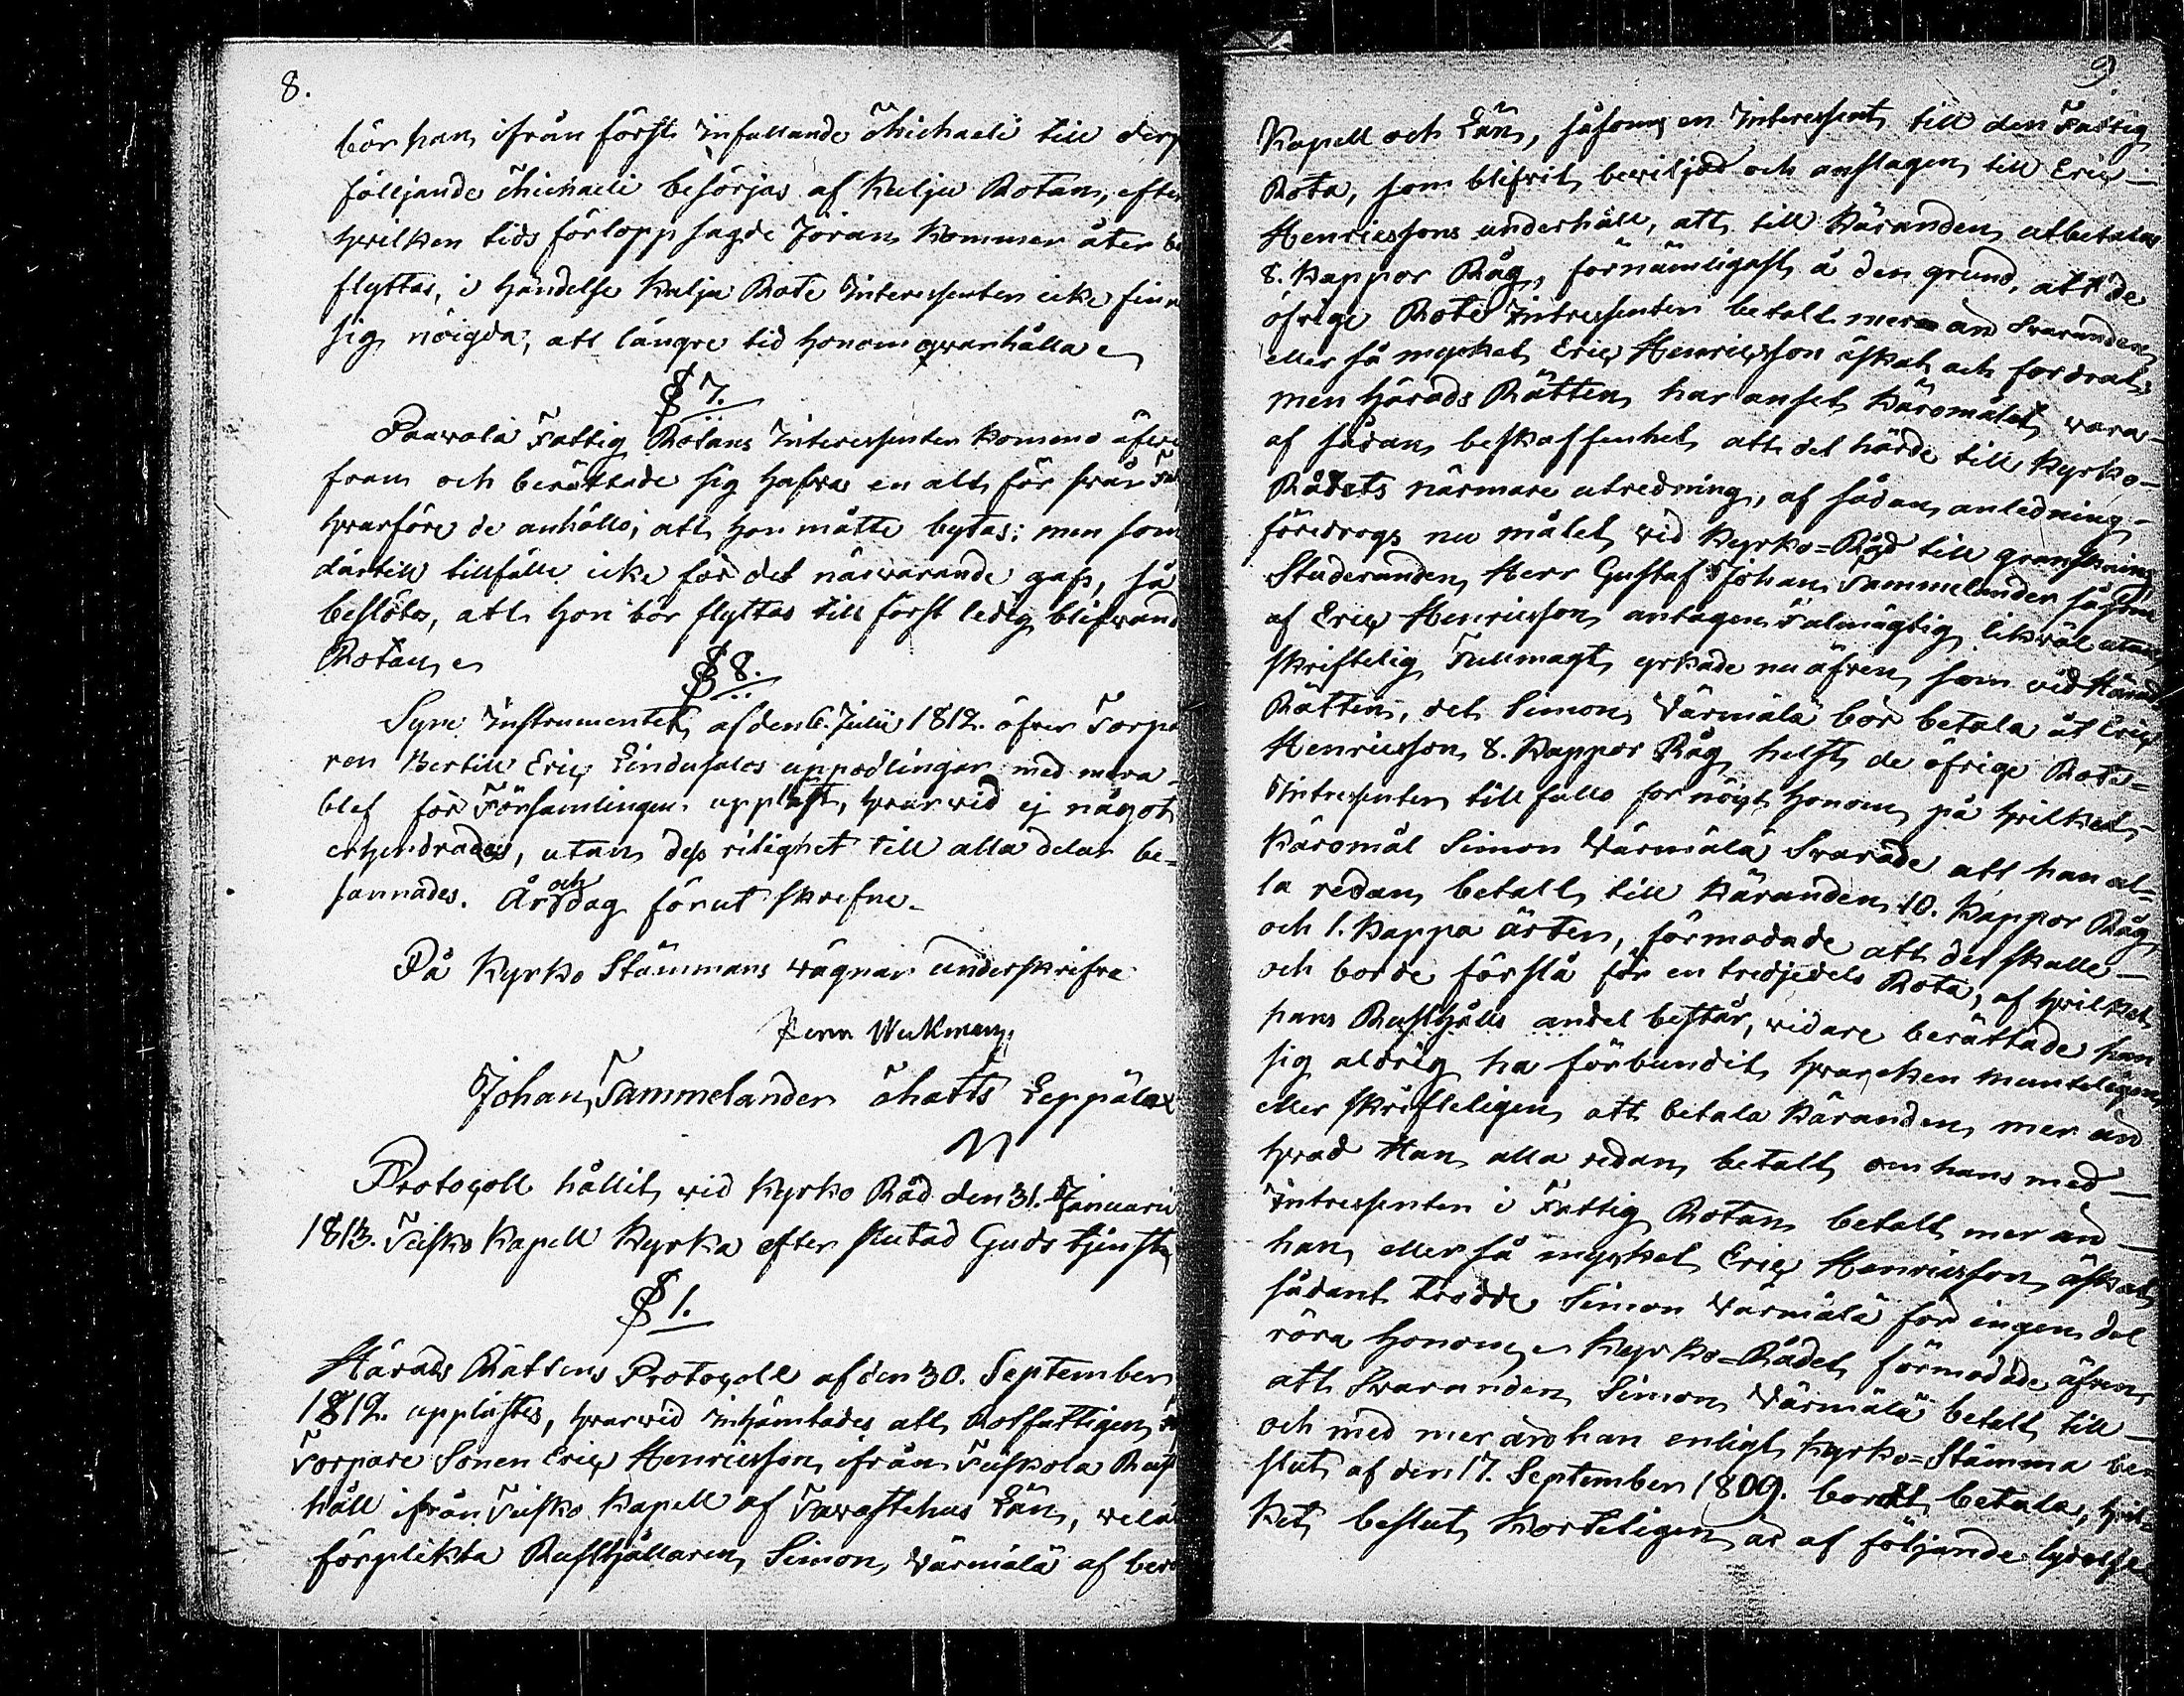 8.
bör han ifrån först infallande Michaeli till derp
följjande Michaeli besörjas af Kulju Rotan, efter
hvilken tids förlopp sagde Jöran kommer åter be
flyttas, i händelse Kulju Rote Interessenter icke finn
sig nöigda, att längre tid honom qvarhålla
§ 7.
Paavola Fattig Rotans Interessenter kommo äfve
fram och berättade sig hafva en alt för svår
hvarföre de anhöllo, att hon måtte bytas; men som
därtill tillfälle icke för det närvarande gafs, så
beslöts, att hon bör flyttas till först ledig blifvand
Rotan
§ 8.
Syne Instrumentet af den 6. Julii 1812. öfver Torpa
ren Bertill Eric Lindusalos uppodlingar med mera
blef för Församlingen uppläst, hvarvid ej något
erhendrades, utan dess rilighet till alla delar be-
sannades. År och dag förut skrefne.
På Kyrko Stämmans vägnar underskrifva
Wekman
Johan Tammelander Matts Leppälax
Protocoll hållit vid Kyrko Råd den 31. Januarii
1813. Teisko Kapell Kyrka efter slutad Guds tjenst
§ 1.
Härads Rättens Protocoll af den 30. September
1812. upplästes, hvarvid inhämtades att Rotfattigen
Torpare Sonen Eric Henricsson ifrån Teiskola Rust
håll ifrån Teisko Kapell af Tavastehus Län, velat
förplikta Rusthållaren Simon Värmälä af berö
9.
Kapell och Län, såsom en Interessent till den Fattig
Rota, som blifvit beviljad och anslagen till Eric
Henricssons underhåll, att till Käranden utbetalas
8. Kappor Råg, förnämligast å den grund, att de
öfrige Rote Intressenter betalt mer än Svaranden
eller så mycket Eric Henricsson äskat och fordrat,
men Härads Rätten har anset Käromålet vara
af sådan beskaffenhet att det hörde till Kyrko-
Rådets närmare utredning, af sådan anledning
föredrogs nu målet vid Kyrko-Råd till granskning
Studeranden Herr Gustaf Johan Tammelander såsom
af Eric Henricsson antagen Fulmägtig likväl utan
skriftelig Fullmagt yrkade nu äfven som vid Härads
Rätten, det Simon Värmälä bör betala åt Eric
Henricsson 8. Kappor Råg, helst de öfrige Rote-
Intressenter till fullo fornöigt honom på hvilket
Käromål Simon Värmälä svarade att han al-
la redan betalt till Käranden 10. Kappor Råg
och 1. Kappa ärter, förmodade att det skulle
och borde förslå för en tredjedels Rota, af hvilket
hans Rusthålls andel består, vidare berättade han
sig aldrig ha förbundit hvarcken munteligen
eller skrifteligen att betala Käranden mer än
hvad Han alla redan betalt om hans med
Intressenter i Fattig Rotan betalt mer än
han eller så mycket Eric Henricsson äskat,
sådant trodde Simon Värmälä för ingen del
röra honom Kyrko-Rådet förmodade äfven
att Svaranden Simon Värmälä betalt till
och med mer än han enligt Kyrko-Stämma be
slut af den 17. September 1809. bordt betala, hvil-
ket beslut korteligen är af följande lydelse